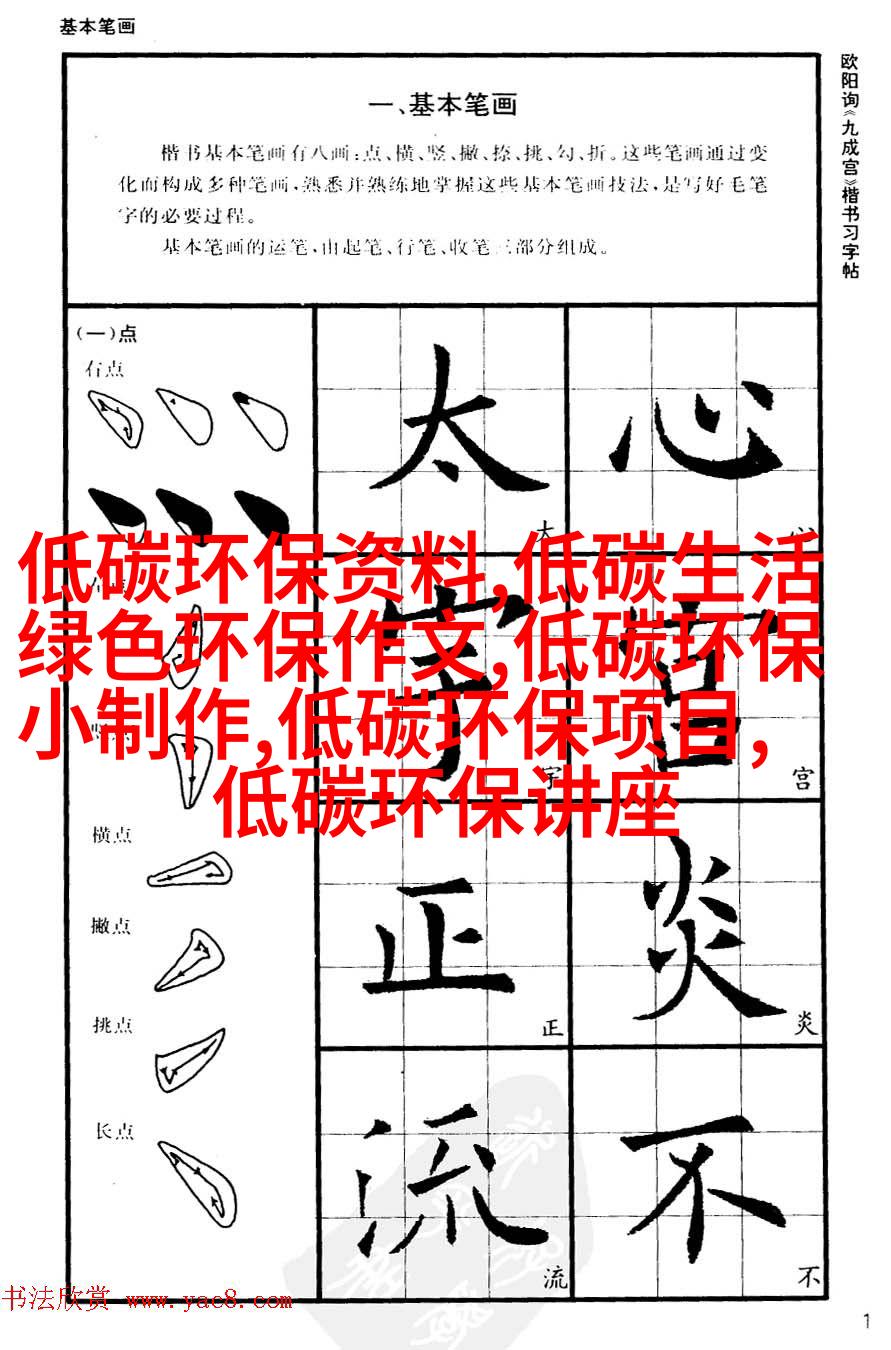 基本笔画
欧阳询《九成宫》楷书习字帖
一、基本笔画
楷书基本笔画有八画:点、横、竖、撇、捺、挑、勾、折。这些笔画通过变
化而构成多种笔画,熟悉并熟练地掌握这些基本笔画技法,是写好毛笔
字的必要过程。
基本笔画的运笔,由起笔、行笔、收笔三部分组成。
(一)点
右点
太 心
太 心
低碳环保资料,低碳生活
绿色环保作文,低碳环保
小制作,低碳环保项目,
低碳环保讲座
宇 宫
宇 宫
横点
撇点
挑点
长点
正 炎
正 炎
流 不
流 不
书法欣赏 www.yac8.com
1